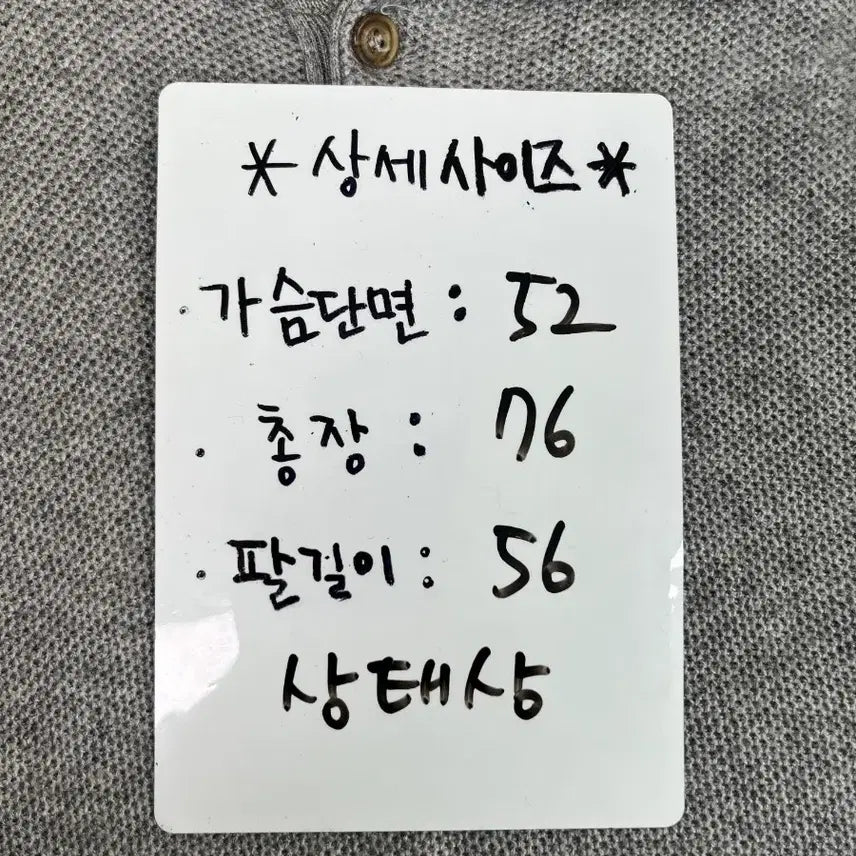 *상세사이즈*
· 가슴단면 : 52
· 총장 : 76
· 팔길이 : 56
상태상